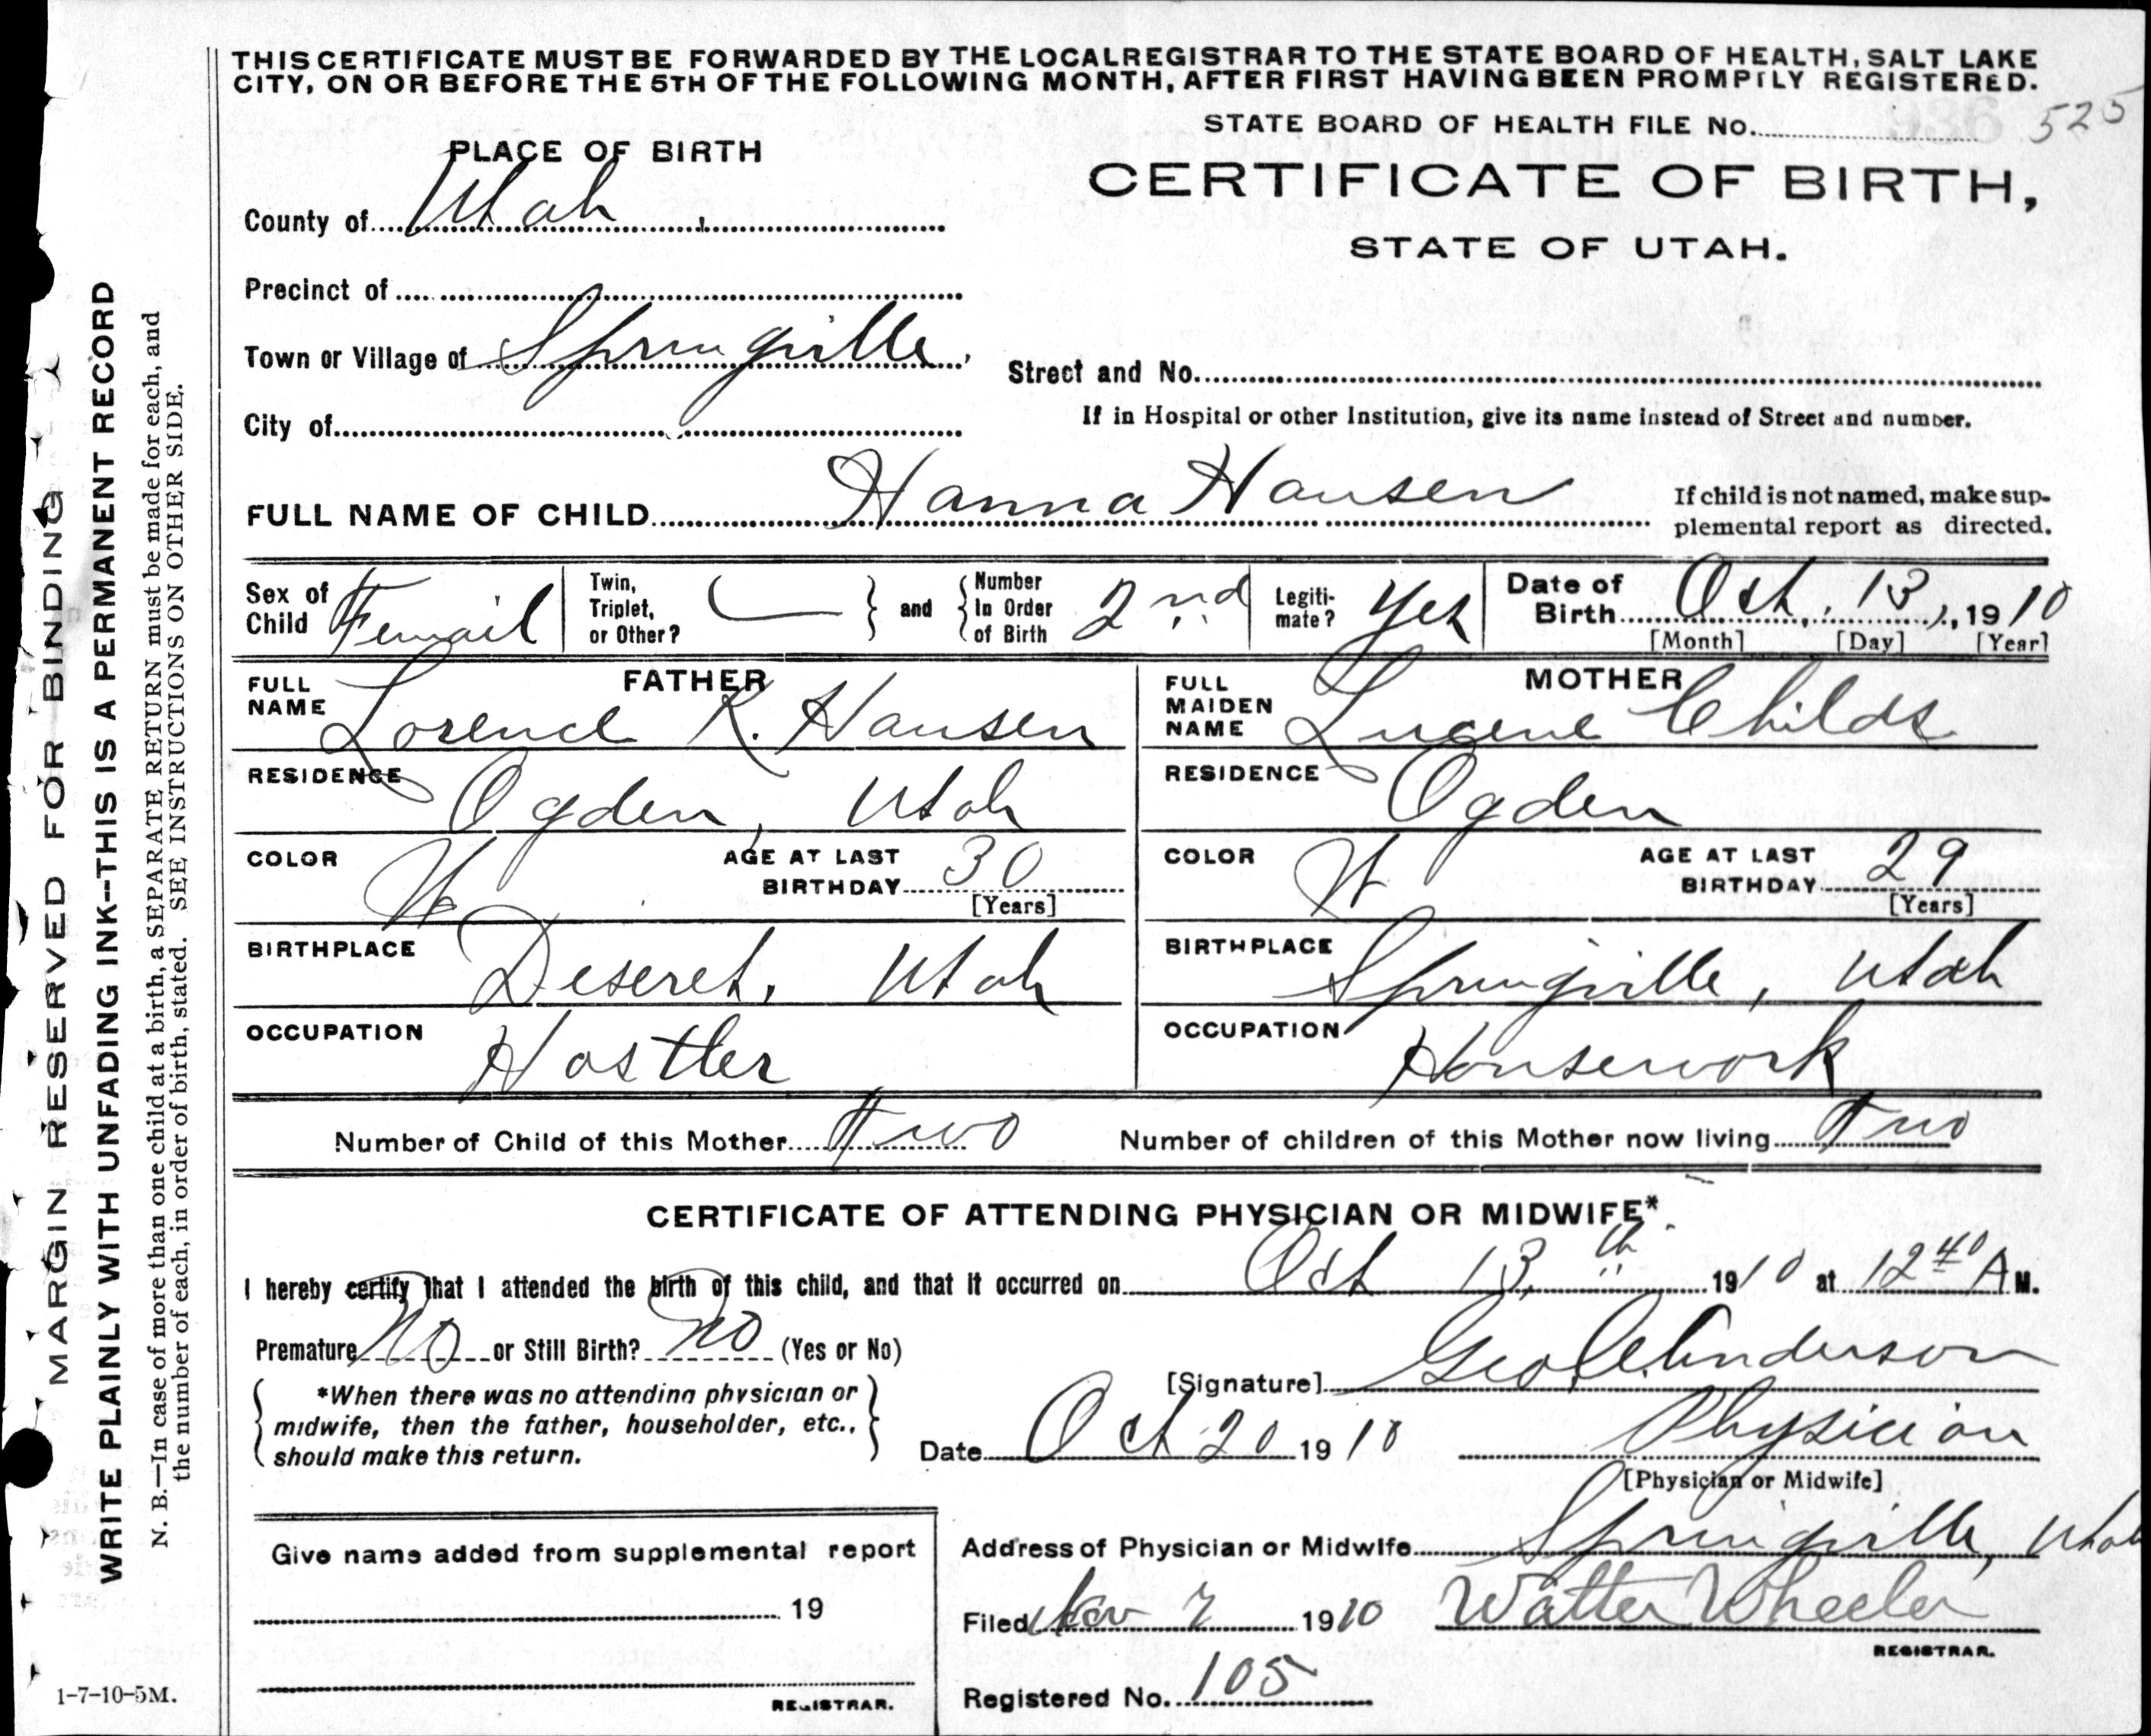 THIS CERTIFICATE MUST BE FORWARDED BY THE LOCALREGISTRAR TO THE STATE BOARD OF HEALTH, SALT LAKE
CITY, ON OR BEFORE THE 5TH OF THE FOLLOWING MONTH, AFTER FIRST HAVING BEEN PROMPTLY REGISTERED.
STATE BOARD OF HEALTH FILE No. 525
PLACE OF BIRTH
CERTIFICATE OF BIRTH,
STATE OF UTAH.
County of Utah
Precinct of
Town or Village of Springville
Street and No.
City of
If in Hospital or other Institution, give its name instead of Street and number.
FULL NAME OF CHILD Hanna Hansen
If child is not named, make sup-
plemental report as directed.
Sex of Child Femail
Twin, Triplet, or Other?
and
Number In Order of Birth 2nd
Legiti-mate? Yes
Date of Birth Oct. 13, 1910
[Month] [Day] [Year]
FATHER
FULL NAME Lorence K. Hansen
RESIDENCE Ogden, Utah
COLOR W
AGE AT LAST BIRTHDAY 30
[Years]
BIRTHPLACE Deseret, Utah
OCCUPATION Hostler
MOTHER
FULL MAIDEN NAME Lugene Childs
RESIDENCE Ogden
COLOR W
AGE AT LAST BIRTHDAY 29
[Years]
BIRTHPLACE Springville, Utah
OCCUPATION Housework
Number of Child of this Mother Two
Number of children of this Mother now living Two
CERTIFICATE OF ATTENDING PHYSICIAN OR MIDWIFE*
I hereby certify that I attended the birth of this child, and that it occurred on Oct 13th 1910 at 12 40 A M.
Premature No or Still Birth? No (Yes or No)
[Signature] Geo. Anderson
*When there was no attending physician or
midwife, then the father, householder, etc.,
should make this return.
Date Oct 20 1910
Physician
[Physician or Midwife]
Address of Physician or Midwife Springville, Utah
Give name added from supplemental report
19
REGISTRAR.
Filed Nov 7 1910 Walter Wheeler
REGISTRAR.
Registered No. 105
MARGIN RESERVED FOR BINDING
WRITE PLAINLY WITH UNFADING INK--THIS IS A PERMANENT RECORD
N. B.—In case of more than one child at a birth, a SEPARATE RETURN must be made for each, and
the number of each, in order of birth, stated. SEE INSTRUCTIONS ON OTHER SIDE.
1-7-10-5M.